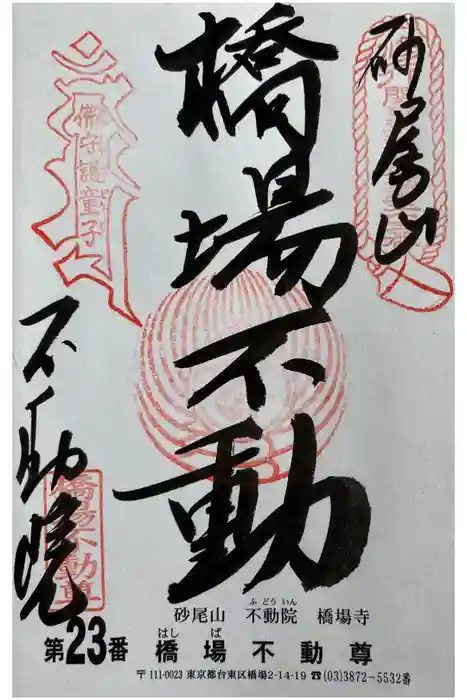 砂尾山
橋場不動
不動院
備守護童子
橋場不動尊
砂尾山 不動院 橋場寺
ふどういん
第23番 橋場不動尊
はしば
〒111-0023 東京都台東区橋場2-14-19 ☎(03)3872-5532番